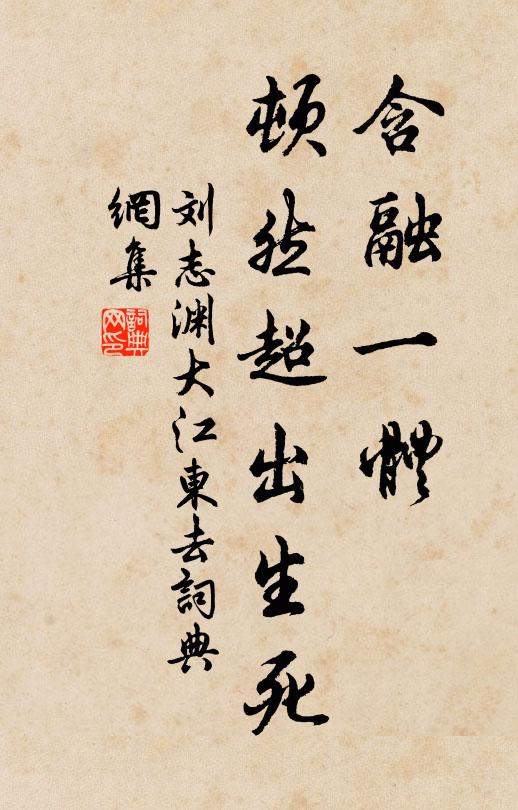 含融一體
頓然超出生死
刘志渊大江東去詞典
網集
詞典
网印